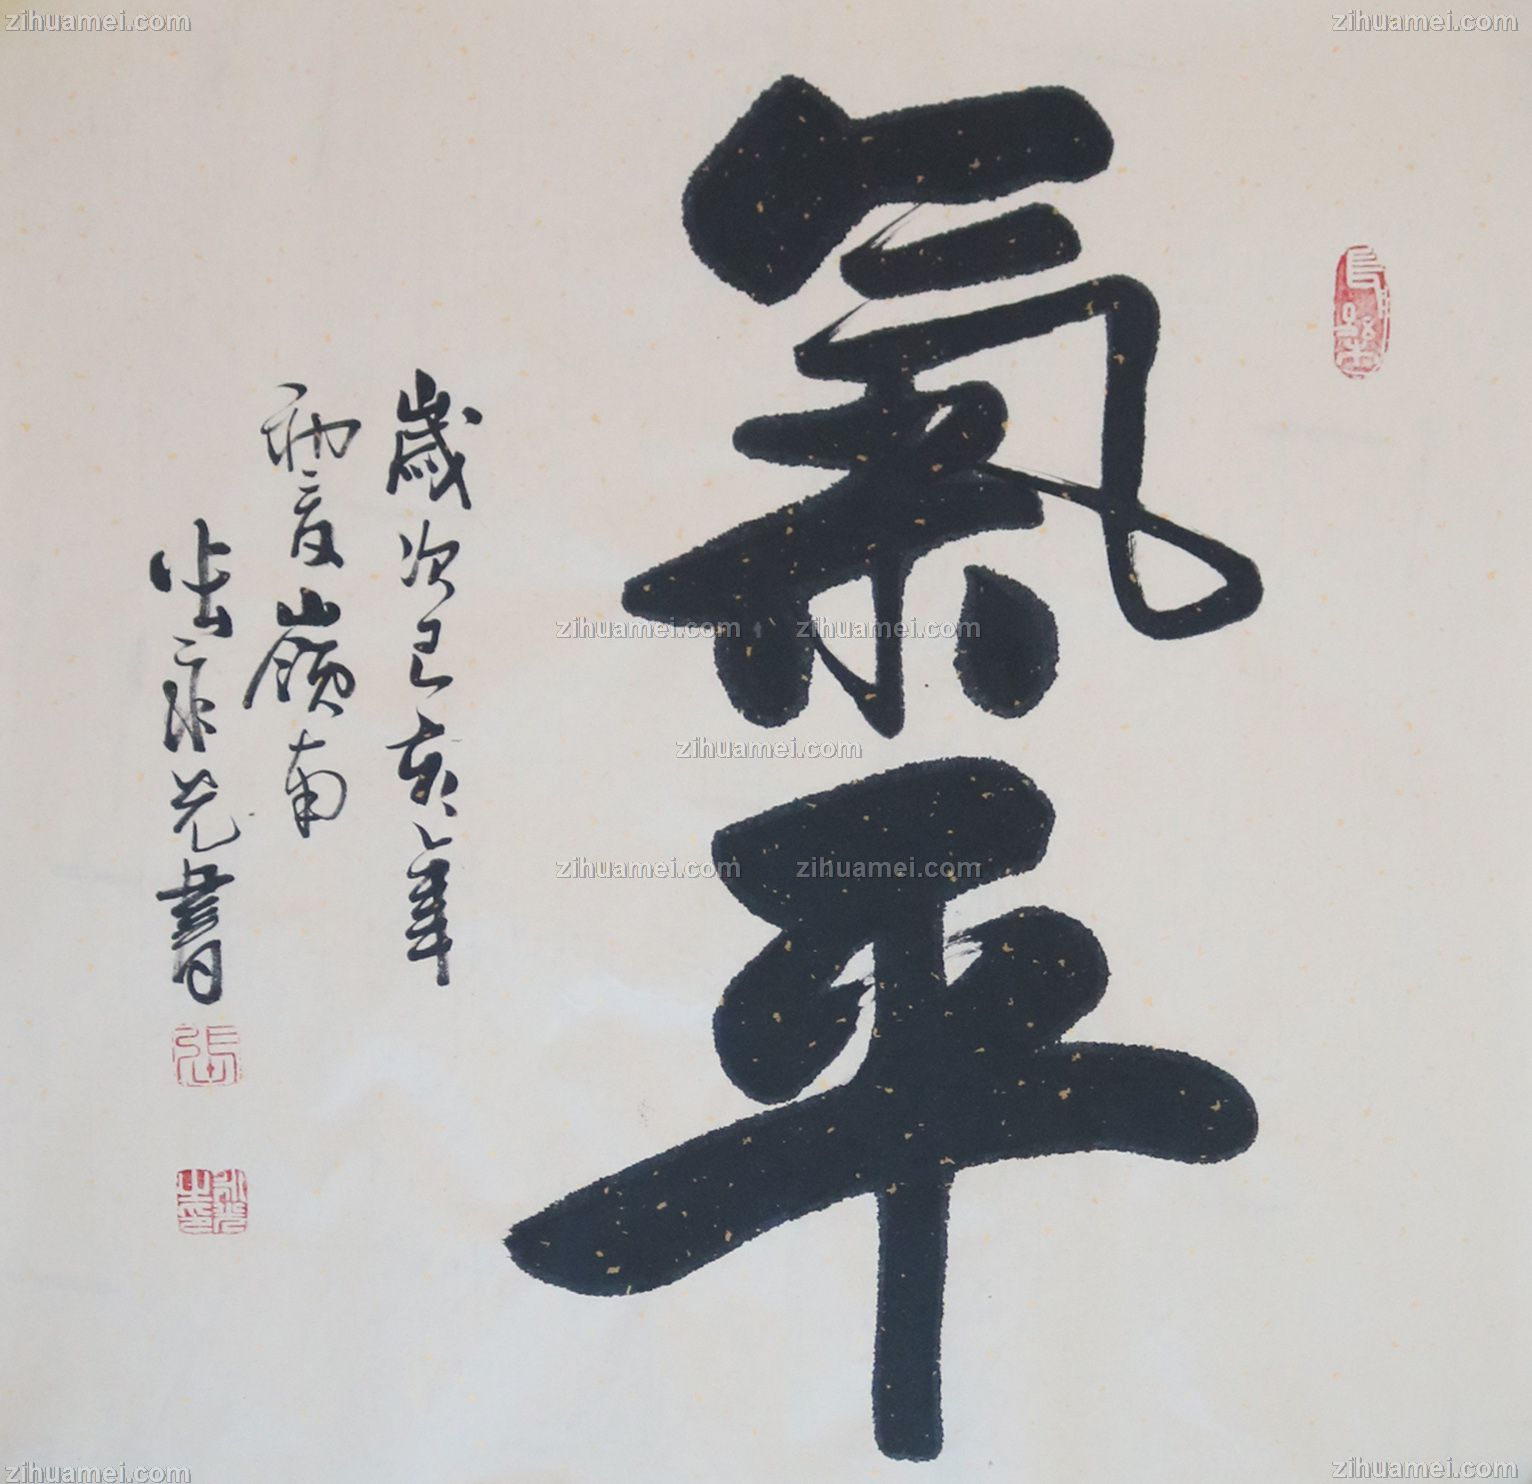 氣平
歲次己亥年
初夏嶺南
張
zihuamei.com
zihuamei.com
zihuamei.com
zihuamei.com
zihuamei.com
zihuamei.com
zihuamei.com
zihuamei.com
zihuamei.com